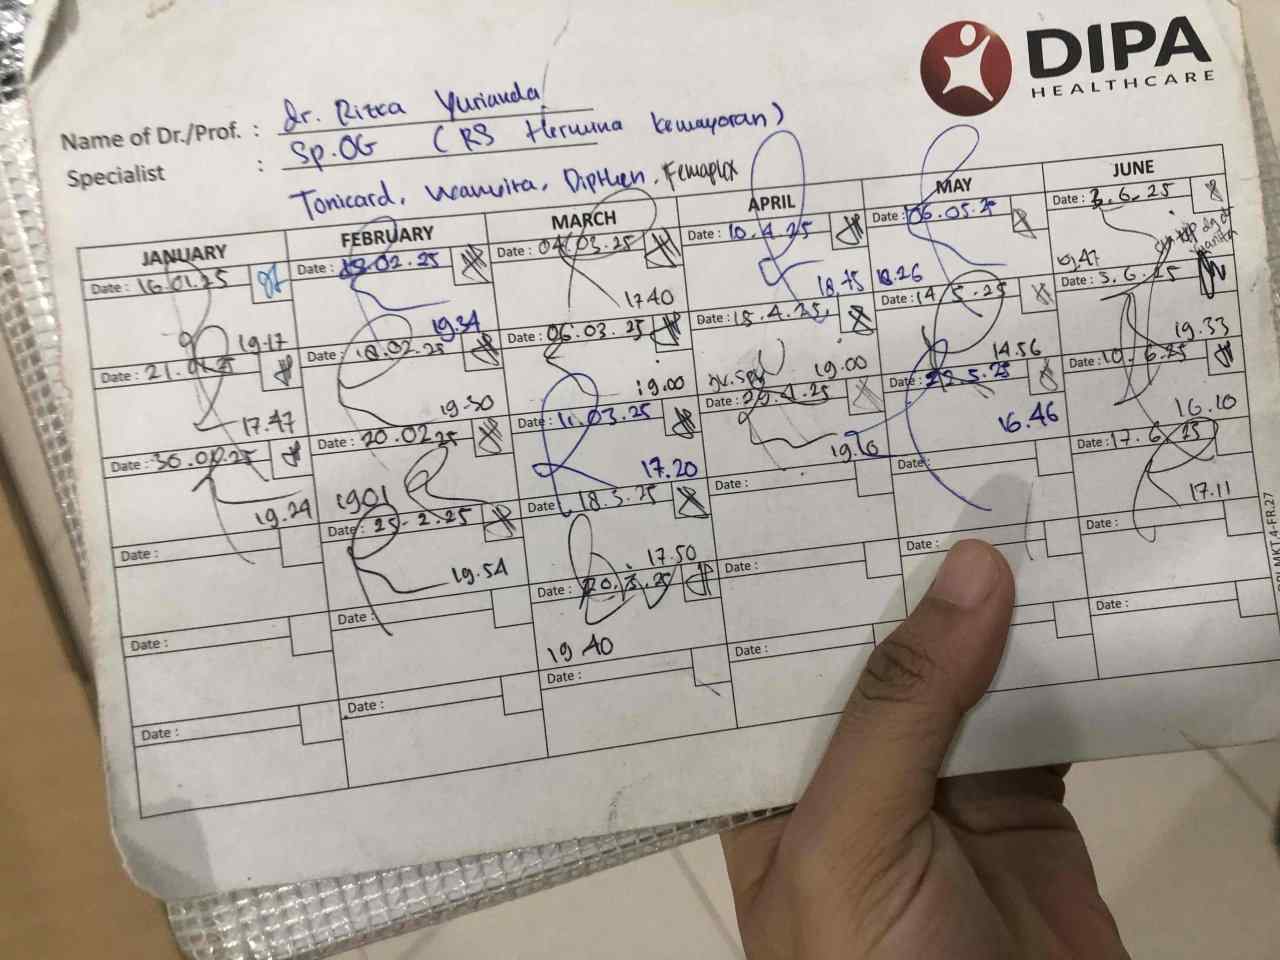 DIPA
HEALTHCARE
Name of Dr./Prof. : dr. Rizka Yurianda
Specialist : Sp.OG (RS Hermina Kemayoran)
Tonicard, Wanvita, Dipthen, Femaplex
JANUARY
Date : 16.01.25
19.17
Date : 21.01.25
17.47
Date : 30.01.25
19.24
Date :
Date :
Date :
FEBRUARY
Date : 02.25
19.34
Date : 18.02.25
19.30
Date : 20.02.25
19.01
Date : 25-2.25
19.54
Date :
Date :
MARCH
Date : 04.03.25
17.40
Date : 06.03.25
19.00
Date : 11.03.25
17.20
Date : 18.3.25
17.50
Date : 20.3.25
19.40
Date :
APRIL
Date : 10.4.25
18.45
Date : 15.4.25
19.00
Date : 29.4.25
19.10
Date :
Date :
Date :
MAY
Date : 06.05.25
18.26
Date : 14.5.25
14.56
Date : 22.5.25
16.46
Date :
Date :
JUNE
Date : 3.6.25
19.47
Date : 5.6.25
19.33
Date : 10.6.25
16.10
Date : 17.6.25
17.11
Date :
Date :